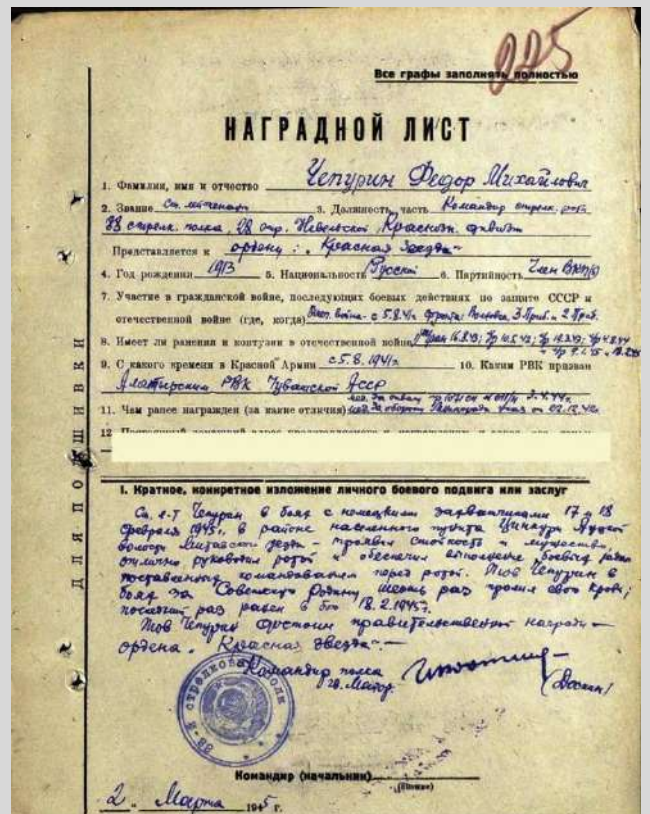 225
Все графы заполнять полностью
НАГРАДНОЙ ЛИСТ
1. Фамилия, имя и отчество Чепурин Федор Михайлович
2. Звание Ст. лейтенант 3. Должность, часть Командир стрелк. роты
88 стрелк. полка, 28 стр. Невельской Краснозн. дивизии
Представляется к ордену: "Красная Звезда"
4. Год рождения 1913 5. Национальность Русский 6. Партийность Член ВКП(б)
7. Участие в гражданской войне, последующих боевых действиях по защите СССР и
отечественной войне (где, когда) Отеч. война - с 5.8.41г. фронта: 3 Приб. и 2 Приб.
8. Имеет ли ранения и контузии в отечественной войне
9. С какого времени в Красной Армии с 5.8.1941г. 10. Каким РВК призван
Алатырским РВК Чувашской АССР
11. Чем ранее награжден (за какие отличия) мед. За отвагу
мед. За оборону Ленинграда от 02.12.42г.
12
ДЛЯ ПОДШИВКИ
I. Краткое, конкретное изложение личного боевого подвига или заслуг
Ст. л-т Чепурин в боях с немецкими захватчиками 17 и 18
февраля 1945г. в районе населенного пункта
волости уезда - проявил стойкость и мужество,
отлично руководил ротой и обеспечил выполнение боевых задач
поставленных командованием перед ротой. Тов Чепурин в
боях за Советскую Родину шесть раз пролил свою кровь;
последний раз ранен в бою 18.2.1945г.
Тов Чепурин достоин правительственной награды —
ордена "Красная Звезда".—
Командир полка
гв. Майор
88-й стрелковый полк
Командир (начальник)
(Подпись)
"2" Марта 1945 г.